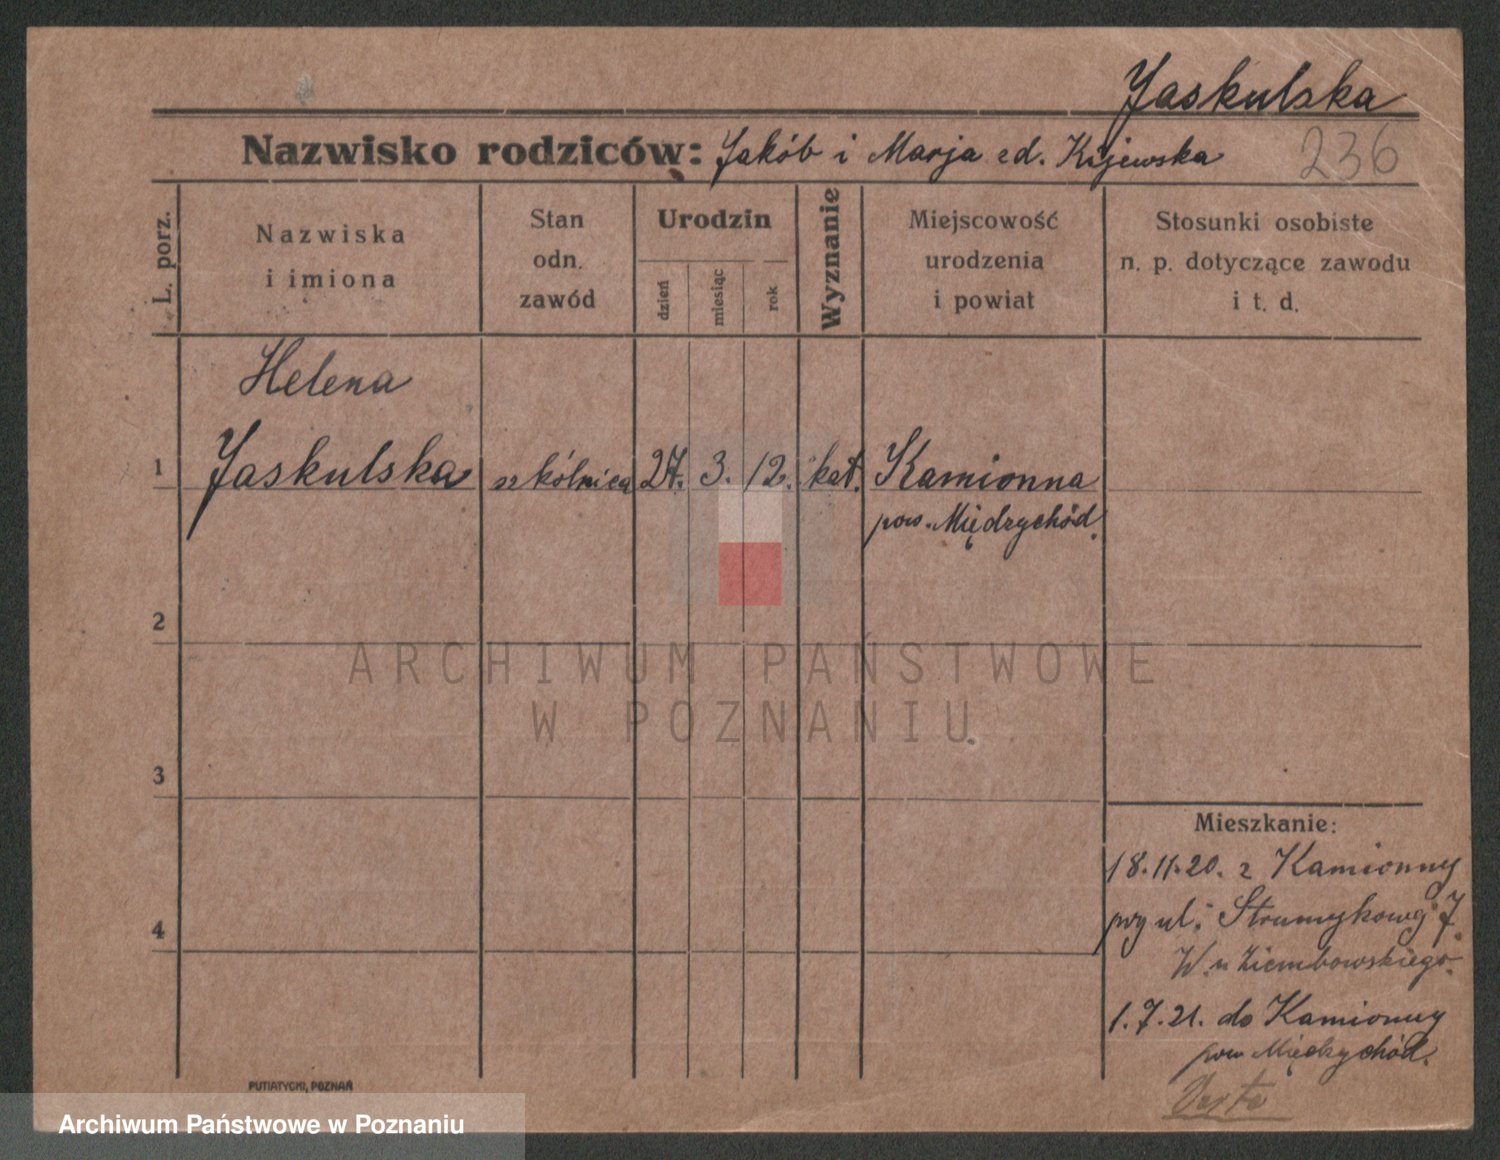 Jaskulska
Nazwisko rodziców: Jakób i Marja zd. Kijewska 236
L. porz.
Nazwiska
i imiona
Stan
odn.
zawód
Urodzin
dzień
miesiąc
rok
Wyznanie
Miejscowość
urodzenia
i powiat
Stosunki osobiste
n. p. dotyczące zawodu
i t. d.
Helena
1 Jaskulska szkólnica 27. 3. 12. kat. Kamionna
pow. Międzychód.
2
3
4
Mieszkanie:
18.11.20. z Kamionny
przy ul. Strumykowej 7.
W. u Ziembowskiego.
1.7.21. do Kamionny
pow Międzychód.
PUTIATYCKI, POZNAŃ
ARCHIWUM PAŃSTWOWE
W POZNANIU
Archiwum Państwowe w Poznaniu